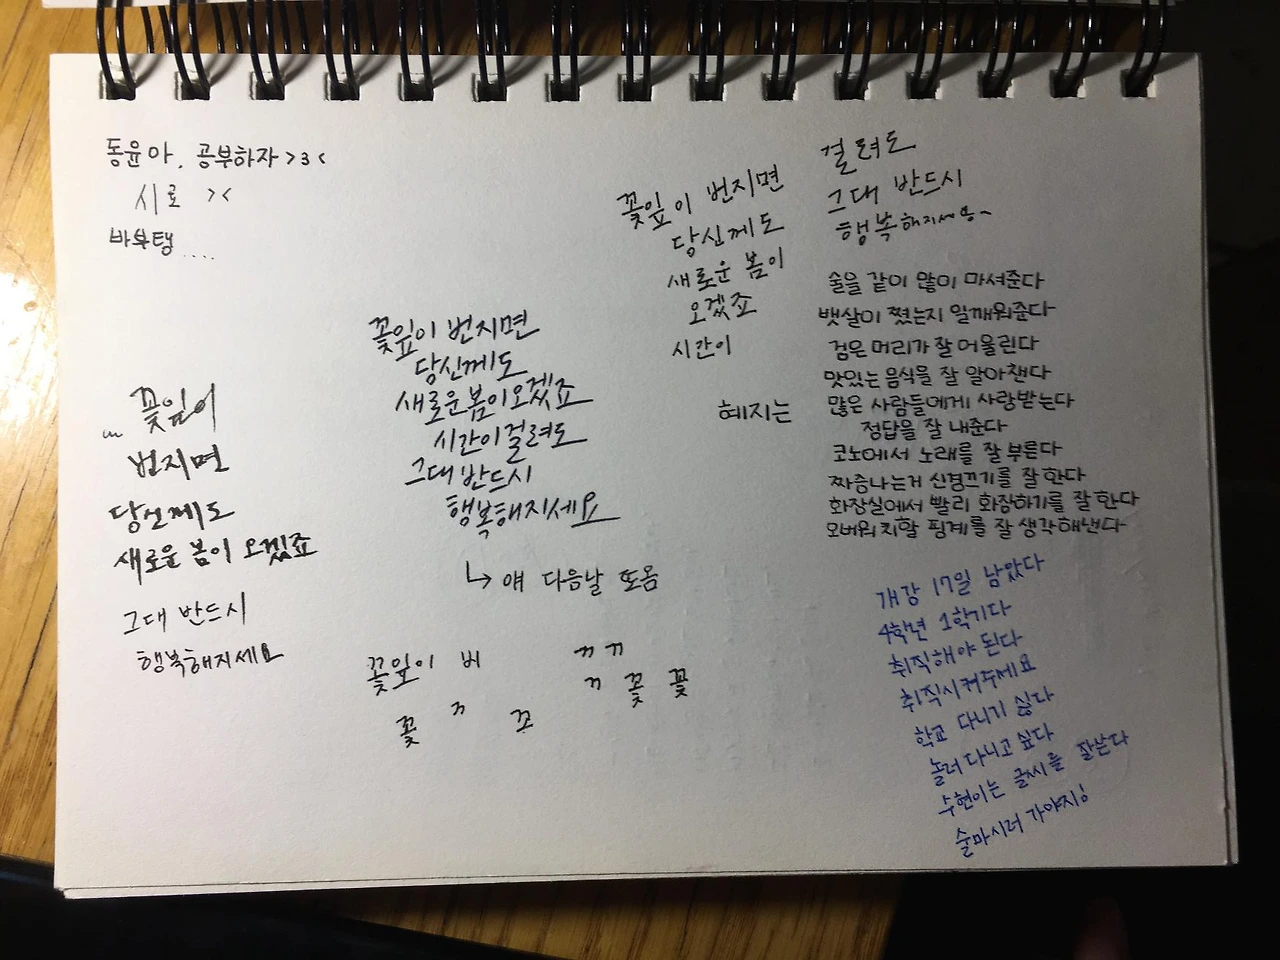 동윤아. 공부하자 >3<
시로 ><
바부탱....
꽃잎이
번지면
당신께도
새로운 봄이 오겠죠
그대 반드시
행복해지세요
꽃잎이 번지면
당신께도
새로운 봄이 오겠죠
시간이 걸려도
그대 반드시
행복해지세요
↳ 얘 다음날 또옴
꽃잎이 버
ㄲ ㄲ
ㄲ 꽃 꽃
꽃 ㄲ 꼬
꽃잎이 번지면
당신께도
새로운 봄이
오겠죠
시간이
걸려도
그대 반드시
행복해지세용~
혜지는
술을 같이 많이 마셔준다
뱃살이 쪘는지 일깨워준다
검은 머리가 잘 어울린다
맛있는 음식을 잘 알아챈다
많은 사람들에게 사랑받는다
정답을 잘 내준다
코노에서 노래를 잘 부른다
짜증나는거 신경끄기를 잘 한다
화장실에서 빨리 화장하기를 잘 한다
오버워치할 핑계를 잘 생각해낸다
개강 17일 남았다
4학년 1학기다
취직해야 된다
취직시켜주세요
학교 다니기 싫다
놀러다니고 싶다
수현이는 글씨를 잘쓴다
술마시러 가야지!